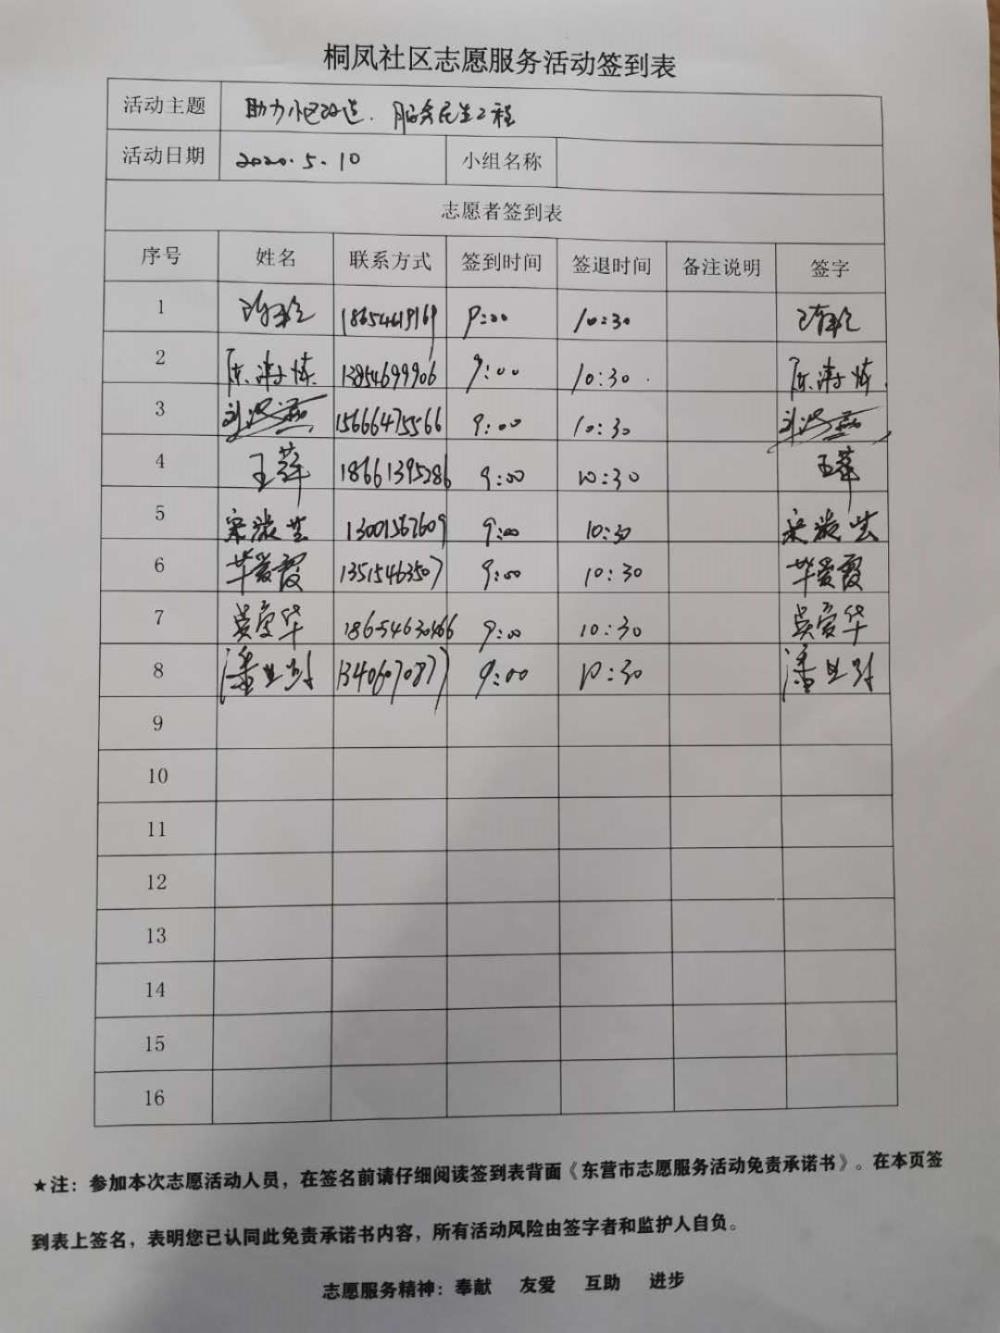 桐凤社区志愿服务活动签到表
活动主题 助力小区改造、服务民生工程
活动日期 2020.5.10 小组名称
志愿者签到表
序号 姓名 联系方式 签到时间 签退时间 备注说明 签字
1 9:00 10:30
2 陈 13854699906 9:00 10:30 陈
3 15666475566 9:00 10:30
4 王萍 18661395286 9:00 10:30 王萍
5 宋淑芸 13001567609 9:00 10:30 宋淑芸
6 毕爱霞 13515463507 9:00 10:30 毕爱霞
7 吴爱华 9:00 10:30 吴爱华
8 潘 13406070877 9:00 10:30 潘
9
10
11
12
13
14
15
16
★注：参加本次志愿活动人员，在签名前请仔细阅读签到表背面《东营市志愿服务活动免责承诺书》。在本页签
到表上签名，表明您已认同此免责承诺书内容，所有活动风险由签字者和监护人自负。
志愿服务精神：奉献 友爱 互助 进步